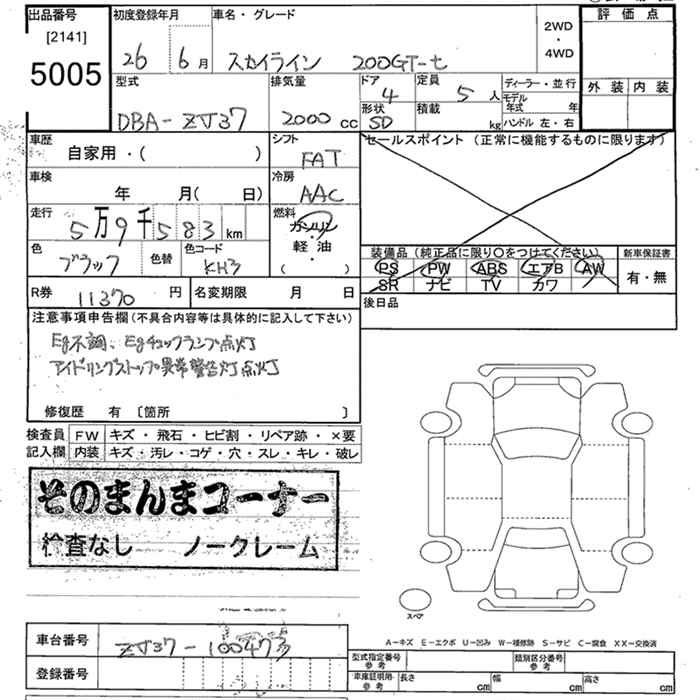 出品番号
[2141]
5005
初度登録年月
26 6月
車名・グレード
スカイライン 200GT-t
2WD
・
4WD
評価点
外装 内装
型式
DBA-ZV37
排気量
2000 cc
ドア 4
定員 5 人
形状 SD
積載 kg
ディーラー・並行
モデル年式 年
ハンドル 左・右
車歴
自家用・( )
シフト
FAT
セールスポイント (正常に機能するものに限ります)
車検
年 月( 日)
冷房
AAC
走行
5万9千583 km
燃料
ガソリン
・
軽油
・
( )
色
ブラック
色替
色コード
KH3
装備品 (純正品に限り○をつけてください)
PS PW ABS エアB AW
SR ナビ TV カワ
新車保証書
有・無
R券 11370 円
名変期限 月 日
後日品
注意事項申告欄(不具合内容等は具体的に記入して下さい)
Eg不調、Egチェックランプ点灯
アイドリングストップ異常警告灯点灯
修復歴 有 [箇所 ]
検査員記入欄
FW キズ・飛石・ヒビ割・リペア跡・×要
内装 キズ・汚レ・コゲ・穴・スレ・キレ・破レ
そのまんまコーナー
検査なし ノークレーム
スペア
A-キズ E-エクボ U-凹み W-補修跡 S-サビ C-腐食 XX-交換済
車台番号
登録番号
型式指定番号
参考
類別区分番号
参考
車庫証明用・参考
長さ cm
幅 cm
高さ cm